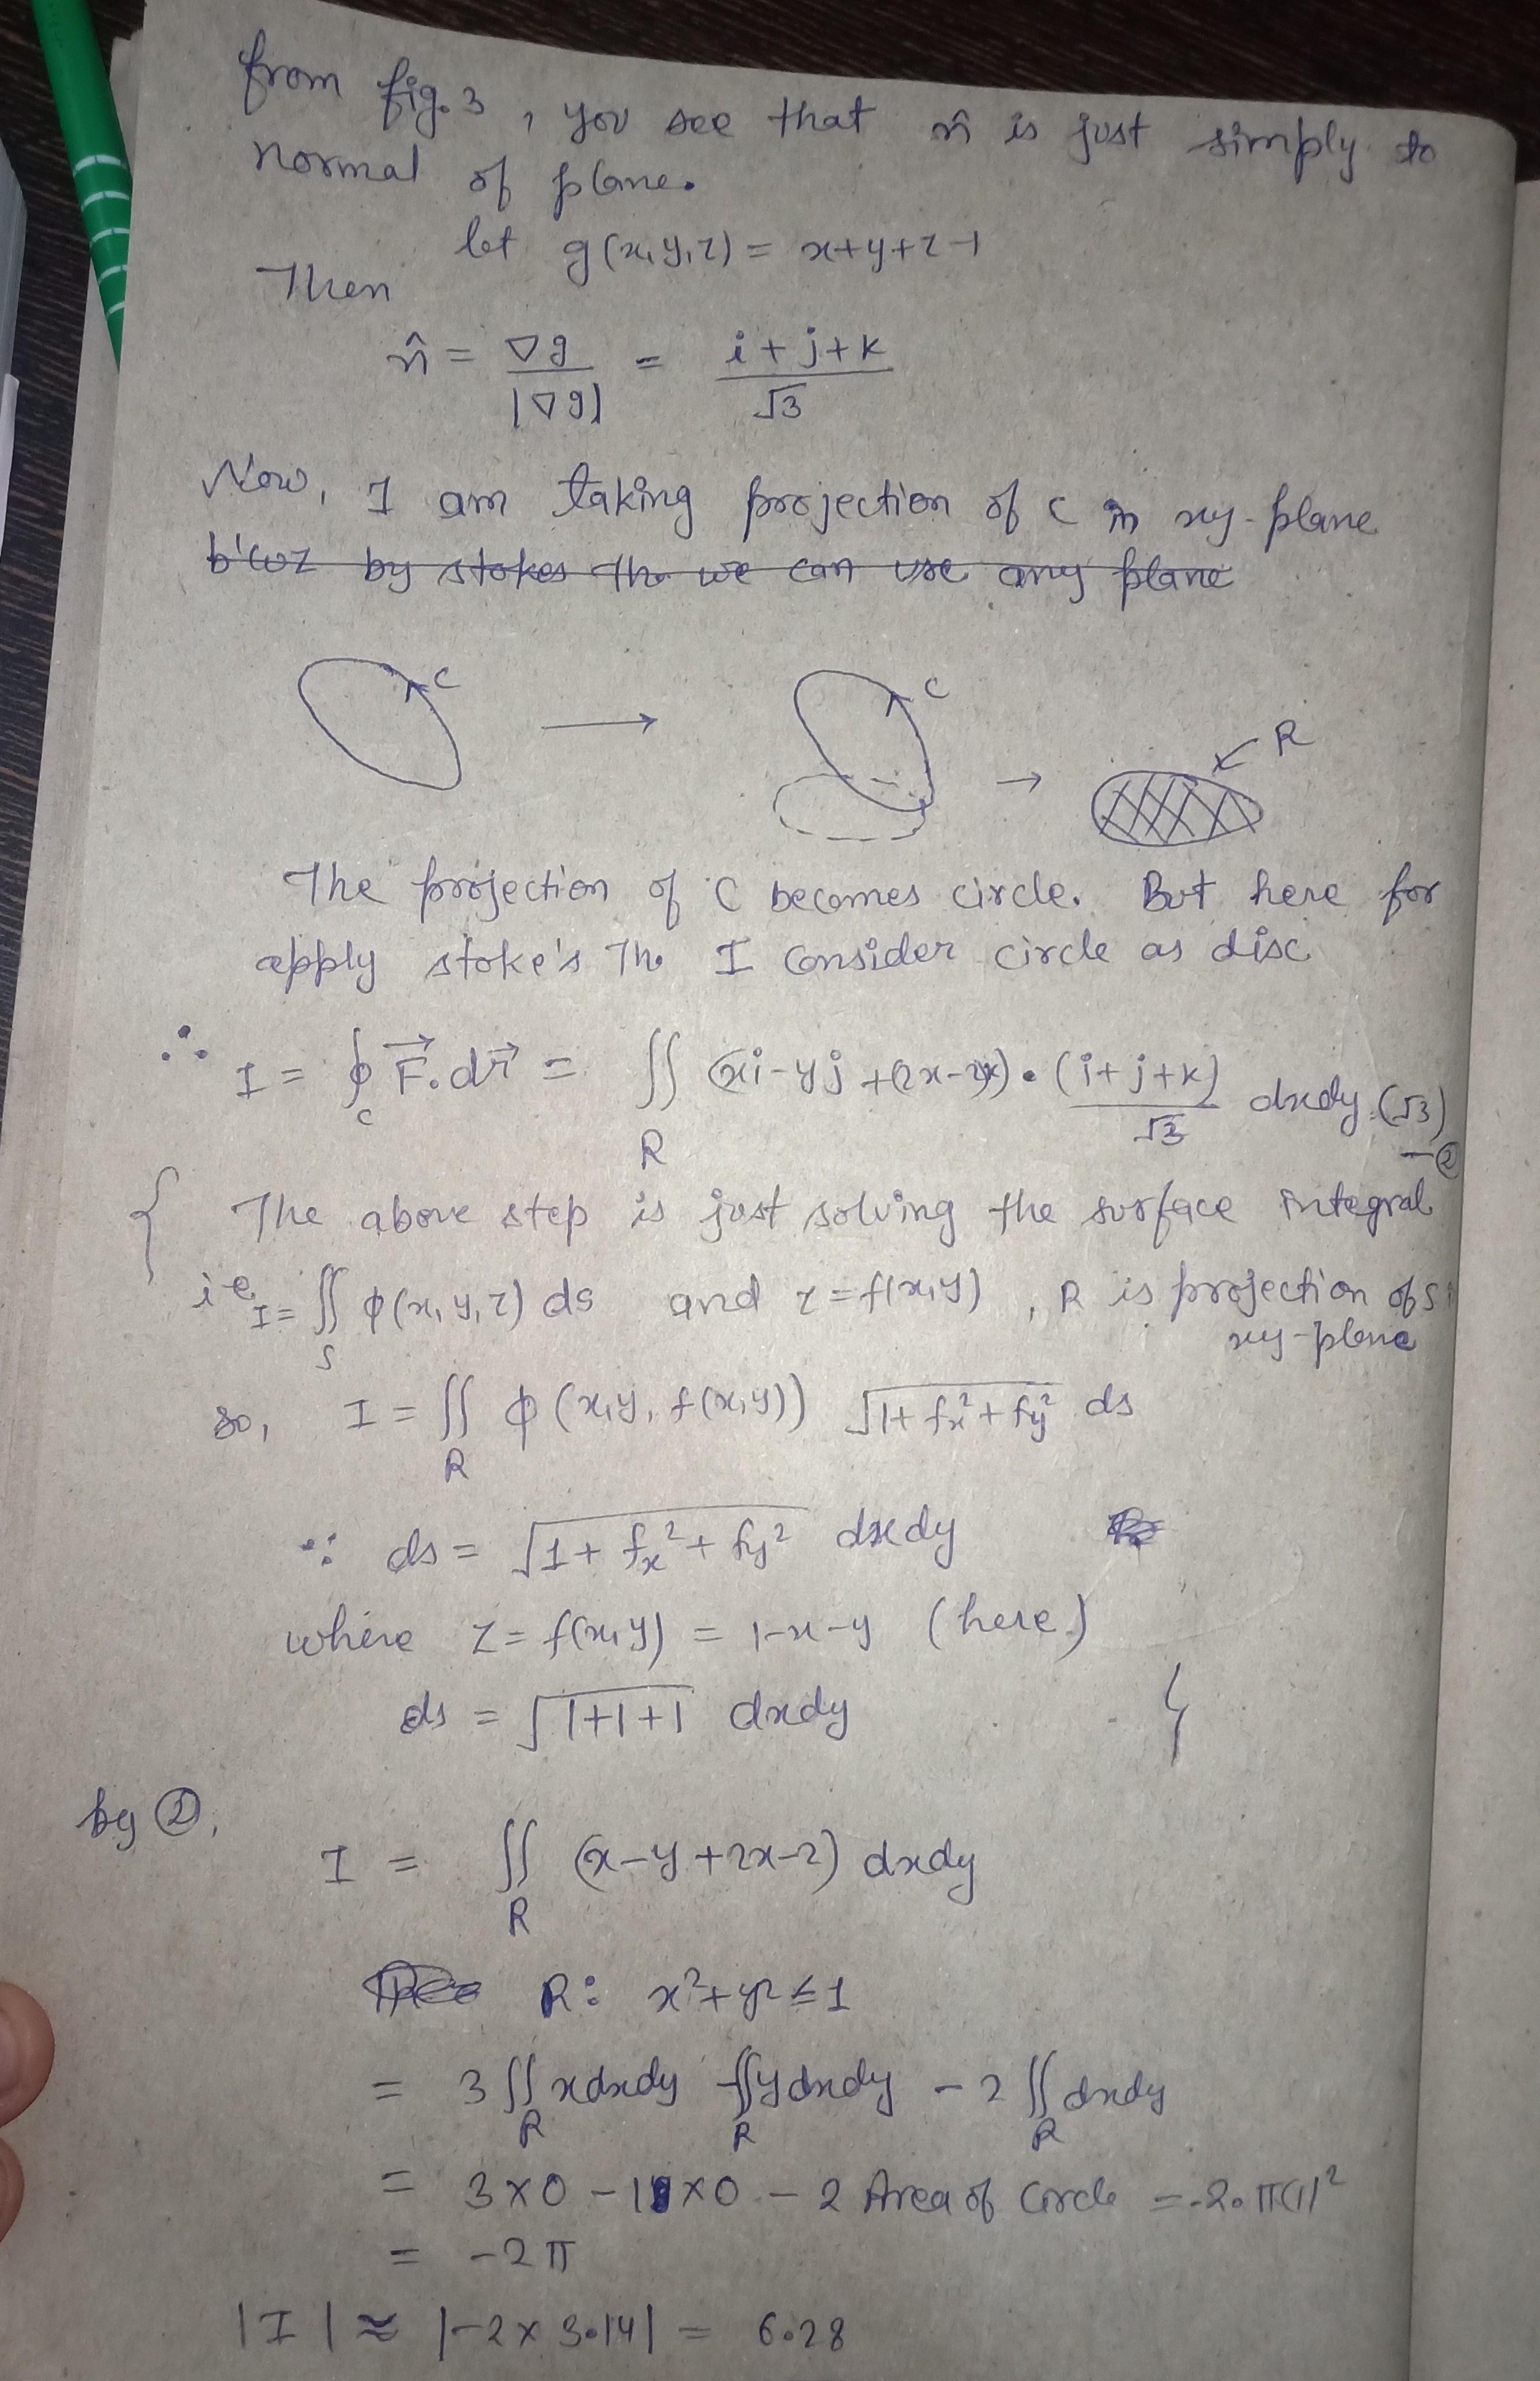 from fig. 3, you see that n̂ is just simply to
normal of plane.
let g(x,y,z) = x+y+z-1
Then
n̂ = ∇g/|∇g| = (i+j+k)/√3
Now, I am taking projection of C in xy-plane
b'coz by stokes Th. we can use any plane
C → C → R
The projection of C becomes circle. But here for
apply stoke's Th. I consider circle as disc
∴ I = ∮_C F⃗.dr⃗ = ∬_R (xi-yj+(2x-2)k)•(i+j+k)/√3 dxdy.(√3) —②
{ The above step is just solving the surface integral
ie I = ∬_S φ(x,y,z) ds and z=f(x,y), R is projection of S
xy-plane
so, I = ∬_R φ(x,y,f(x,y)) √(1+fx²+fy²) ds
∵ ds = √(1+fx²+fy²) dxdy
where z = f(x,y) = 1-x-y (here)
ds = √(1+1+1) dxdy }
by ②,
I = ∬_R (x-y+2x-2) dxdy
R: x²+y² ≤ 1
= 3∬_R xdxdy -∬_R ydxdy - 2∬_R dxdy
= 3×0 - 1×0 - 2 Area of Circle = -2.π(1)²
= -2π
|I| ≈ |-2×3.14| = 6.28